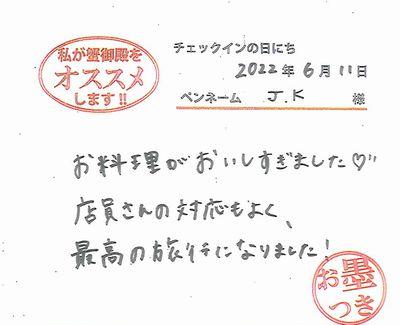 私が蟹御殿を
オススメ
します!!
チェックインの日にち
2022年6月11日
ペンネーム J.K 様
お料理がおいしすぎました♡"
店員さんの対応もよく、
最高の旅行になりました!
お墨
つき